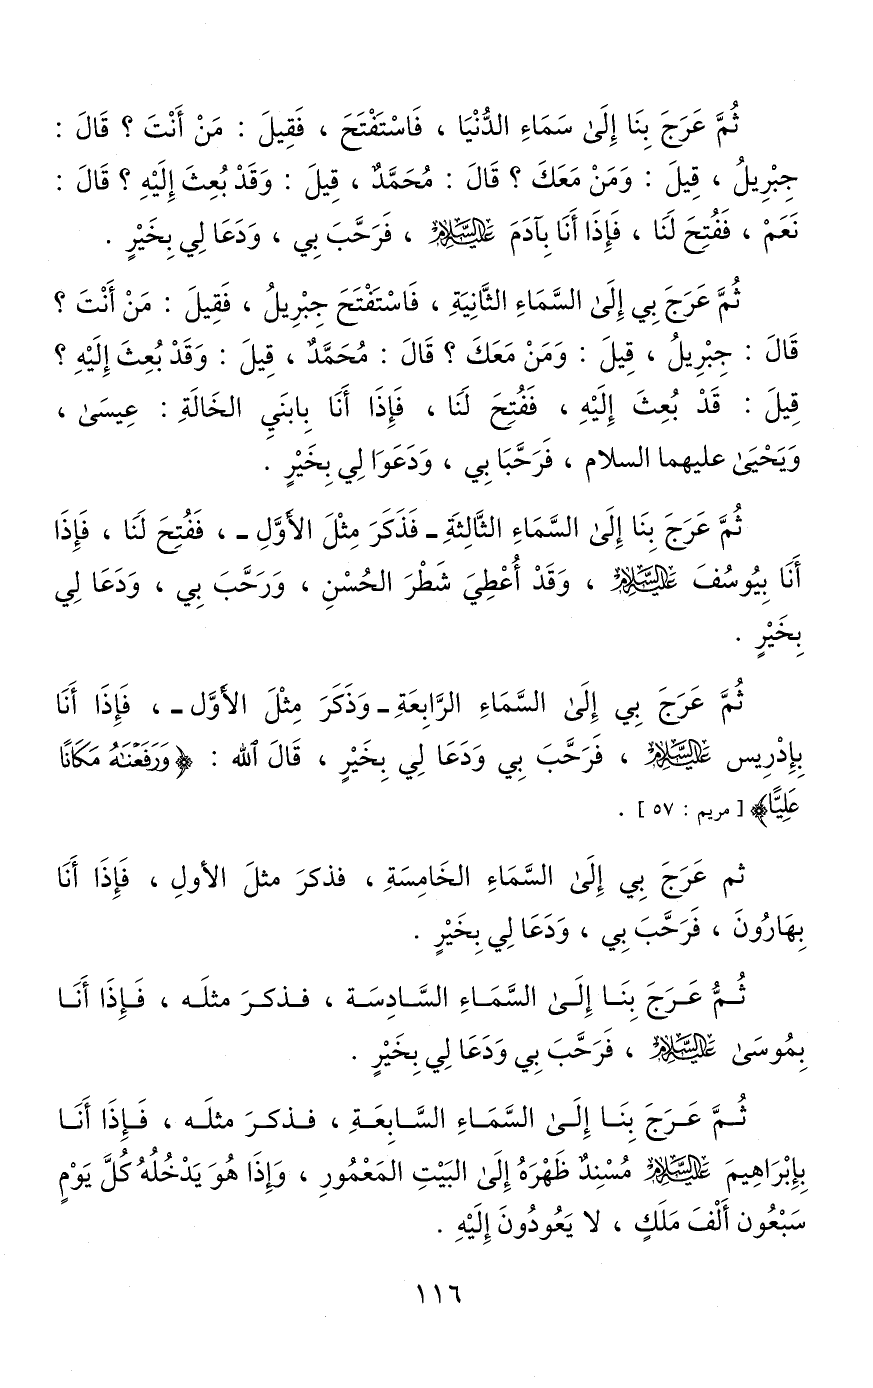 ثُمَّ عَرَجَ بِنَا إِلَىٰ سَمَاءِ الدُّنْيَا ، فَاسْتَفْتَحَ ، فَقِيلَ : مَنْ أَنْتَ ؟ قَالَ :
جِبْرِيلُ ، قِيلَ : وَمَنْ مَعَكَ ؟ قَالَ : مُحَمَّدٌ ، قِيلَ : وَقَدْ بُعِثَ إِلَيْهِ ؟ قَالَ :
نَعَمْ ، فَفُتِحَ لَنَا ، فَإِذَا أَنَا بِآدَمَ عَلَيْهِ السَّلَامُ ، فَرَحَّبَ بِي ، وَدَعَا لِي بِخَيْرٍ .
ثُمَّ عَرَجَ بِي إِلَىٰ السَّمَاءِ الثَّانِيَةِ ، فَاسْتَفْتَحَ جِبْرِيلُ ، فَقِيلَ : مَنْ أَنْتَ ؟
قَالَ : جِبْرِيلُ ، قِيلَ : وَمَنْ مَعَكَ ؟ قَالَ : مُحَمَّدٌ ، قِيلَ : وَقَدْ بُعِثَ إِلَيْهِ ؟
قِيلَ : قَدْ بُعِثَ إِلَيْهِ ، فَفُتِحَ لَنَا ، فَإِذَا أَنَا بِابنَيِ الخَالَةِ : عِيسَىٰ ،
وَيَحْيَىٰ عليهما السلام ، فَرَحَّبَا بِي ، وَدَعَوَا لِي بِخَيْرٍ .
ثُمَّ عَرَجَ بِنَا إِلَىٰ السَّمَاءِ الثَّالِثَةِ ـ فَذَكَرَ مِثْلَ الأَوَّلِ ـ ، فَفُتِحَ لَنَا ، فَإِذَا
أَنَا بِيُوسُفَ عَلَيْهِ السَّلَامُ ، وَقَدْ أُعْطِيَ شَطْرَ الحُسْنِ ، وَرَحَّبَ بِي ، وَدَعَا لِي
بِخَيْرٍ .
ثُمَّ عَرَجَ بِي إِلَىٰ السَّمَاءِ الرَّابِعَةِ ـ وَذَكَرَ مِثْلَ الأَوَّل ـ ، فَإِذَا أَنَا
بِإِدْرِيس عَلَيْهِ السَّلَامُ ، فَرَحَّبَ بِي وَدَعَا لِي بِخَيْرٍ ، قَالَ ٱلله : ﴿وَرَفَعْنَٰهُ مَكَانًا
عَلِيًّا﴾ [ مريم : ٥٧ ] .
ثم عَرَجَ بِي إِلَىٰ السَّمَاءِ الخَامِسَةِ ، فذكرَ مثلَ الأولِ ، فَإِذَا أَنَا
بِهَارُونَ ، فَرَحَّبَ بِي ، وَدَعَا لِي بِخَيْرٍ .
ثُمَُّ عَرَجَ بِنَا إِلَىٰ السَّمَاءِ السَّادِسَة ، فذكرَ مثلَه ، فَإِذَا أَنَا
بِمُوسَىٰ عَلَيْهِ السَّلَامُ ، فَرَحَّبَ بِي وَدَعَا لِي بِخَيْرٍ .
ثُمَّ عَرَجَ بِنَا إِلَىٰ السَّمَاءِ السَّابِعَةِ ، فذكرَ مثلَه ، فَإِذَا أَنَا
بِإِبْرَاهِيمَ عَلَيْهِ السَّلَامُ مُسْنِدٌ ظَهْرَهُ إِلَىٰ البَيْتِ المَعْمُورِ ، وَإِذَا هُوَ يَدْخُلُهُ كُلَّ يَوْمٍ
سَبْعُون أَلْفَ مَلَكٍ ، لا يَعُودُونَ إِلَيْهِ .
١١٦